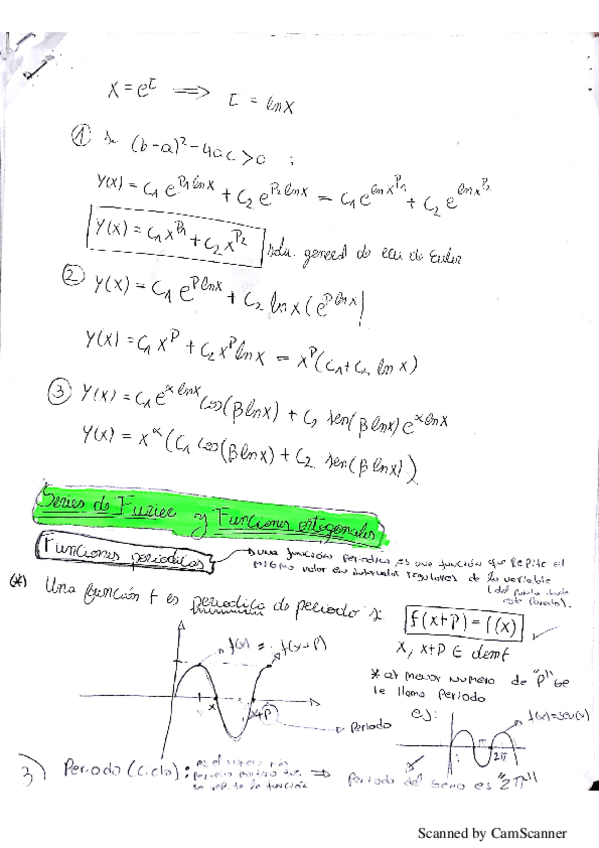 x = e^t ⟹ t = ln x
① si (b-a)² - 4ac > 0 :
y(x) = C₁ e^{P₁ ln x} + C₂ e^{P₂ ln x} = C₁ e^{ln x^{P₁}} + C₂ e^{ln x^{P₂}}
y(x) = C₁ x^{P₁} + C₂ x^{P₂} soln. general de ecu. de Euler
② y(x) = C₁ e^{P ln x} + C₂ ln x (e^{P ln x})
y(x) = C₁ x^P + C₂ x^P ln x = x^P (C₁ + C₂ ln x)
③ y(x) = C₁ e^{α ln x} cos(β ln x) + C₂ sen(β ln x) e^{α ln x}
y(x) = x^α (C₁ cos(β ln x) + C₂ sen(β ln x))
Series de Furier y Funciones ortogonales
Funciones periodicas → una función periodica es una función que repite el
mismo valor en intervalos regulares de la variable
(*) Una función f es periodica de periodo si f(x+p) = f(x)
x, x+p ∈ domf
f(x) = f(x+p)
* al menor numero de "p" se
le llama periodo
x x+p → Periodo
ej: f(x)=sen(x)
π 2π
3) Periodo (ciclo): es el numero más
pequeño positivo que
se repite la función ⟹ periodo del seno es "2π"
Scanned by CamScanner